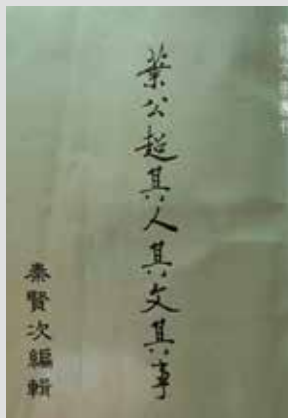 葉公超其人其文其事
秦賢次編輯